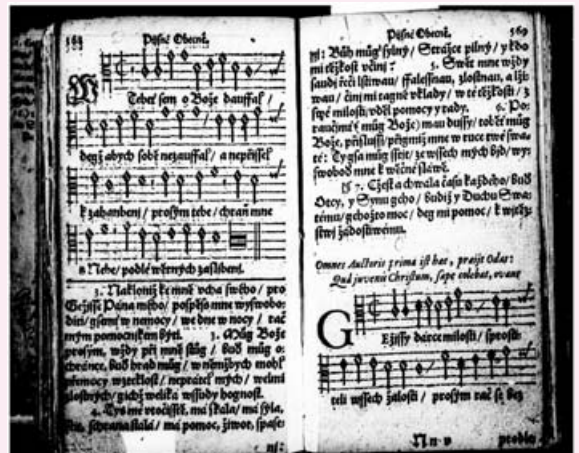 568 Pijsně Obecné.
W Tebeť sem o Bože dauffal /
degž abych sobě nezauffal / a nepřissel
k zahanbenj / prosým tebe / chraň mne
podlé wěrných zaslíbenj.
2. Nakloniž ke mně vcha swého / pro
Gežjsse Pána mého / pospěš mne wyswobo-
diti / gsem w nemocy / we dne w nocy / rač
mým pomocnjkem býti. 3. Můg Bože
prosým, wždy při mně stůg / buď můg o-
chránce, buď hrad můg / w němžbych mohl
přemocy wzteklost / nepřátel mých / welmi
zlostných / gichž weliká wssudy hognost.
4. Tys mé vtočisstě, má skála / má sýla,
schrana stálá / má pomoc, žiwot, spase-
nj:
Pijsně Obecné. 569
nj: Bůh můg sylný / Strážce pilný / y kdo
mi těžkost včinj? 5. Swět mne wždy
saudj řečj lstiwau / ffalessnau, zlostnau, a lži-
wau / činj mi tagné vklady / w té těžkosti / z
swé milosti / vděl pomocy y rady. 6. Po-
raučjmť (můg Bože) mau dussy / tobeť můg
Bože, přislussý / přigmiž mne w ruce twé swa-
té: Tygsa můg sstjt / ze wssech mých býd / wy-
swoboď mne k wěčné sláwě.
7. Čzest a chwála času každého / buď
Otcy, y Synu geho / budiž y Duchu Swa-
tému / gehožto moc / deg mi pomoc / k wjtěz-
stwj žádostiwému.
Omnes Auctoris prima ist hac, praijt Odas:
Qud juvenis Christum, sape colebat, ovans
GEžjssy dárce milosti / sprosti-
teli wssech žalostj / prosým rač se bez
Nn v probl